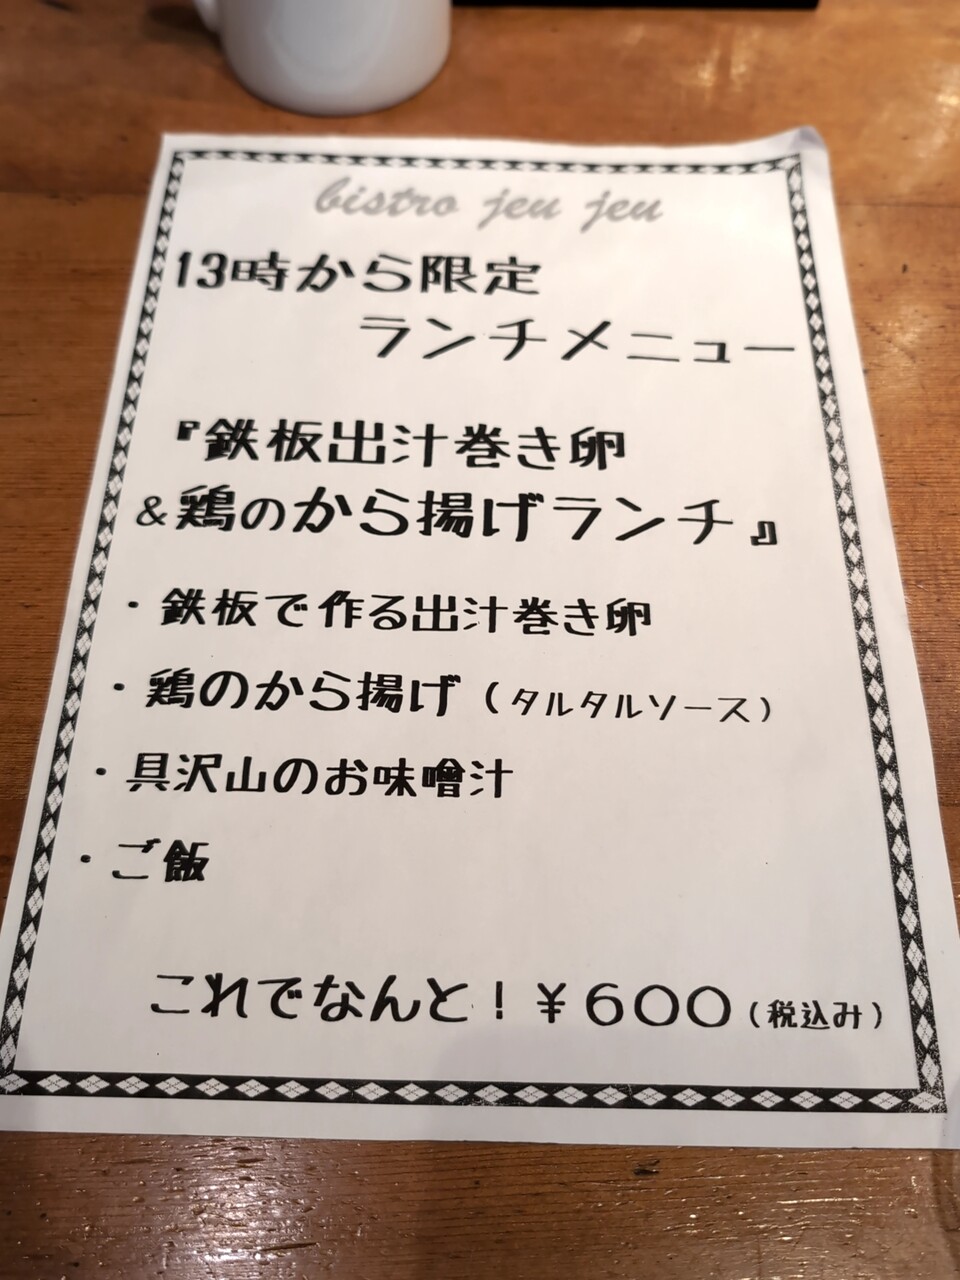 bistro jeu jeu
13時から限定
ランチメニュー
『鉄板出汁巻き卵
&鶏のから揚げランチ』
・鉄板で作る出汁巻き卵
・鶏のから揚げ（タルタルソース）
・具沢山のお味噌汁
・ご飯
これでなんと！￥600（税込み）